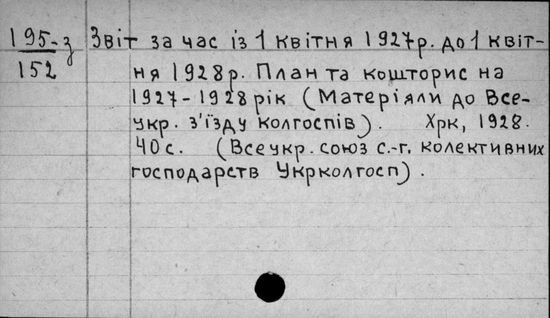 195-з Звіт за час із 1 квітня 1927р. до 1 квіт-
152 ня 1928р. План та кошторис на
1927-1928 рік (Матеріяли до Все-
укр. з'їзду колгоспів). Хрк, 1928.
40с. (Всеукр. союз с.-г. колективних
господарств Укрколгосп).